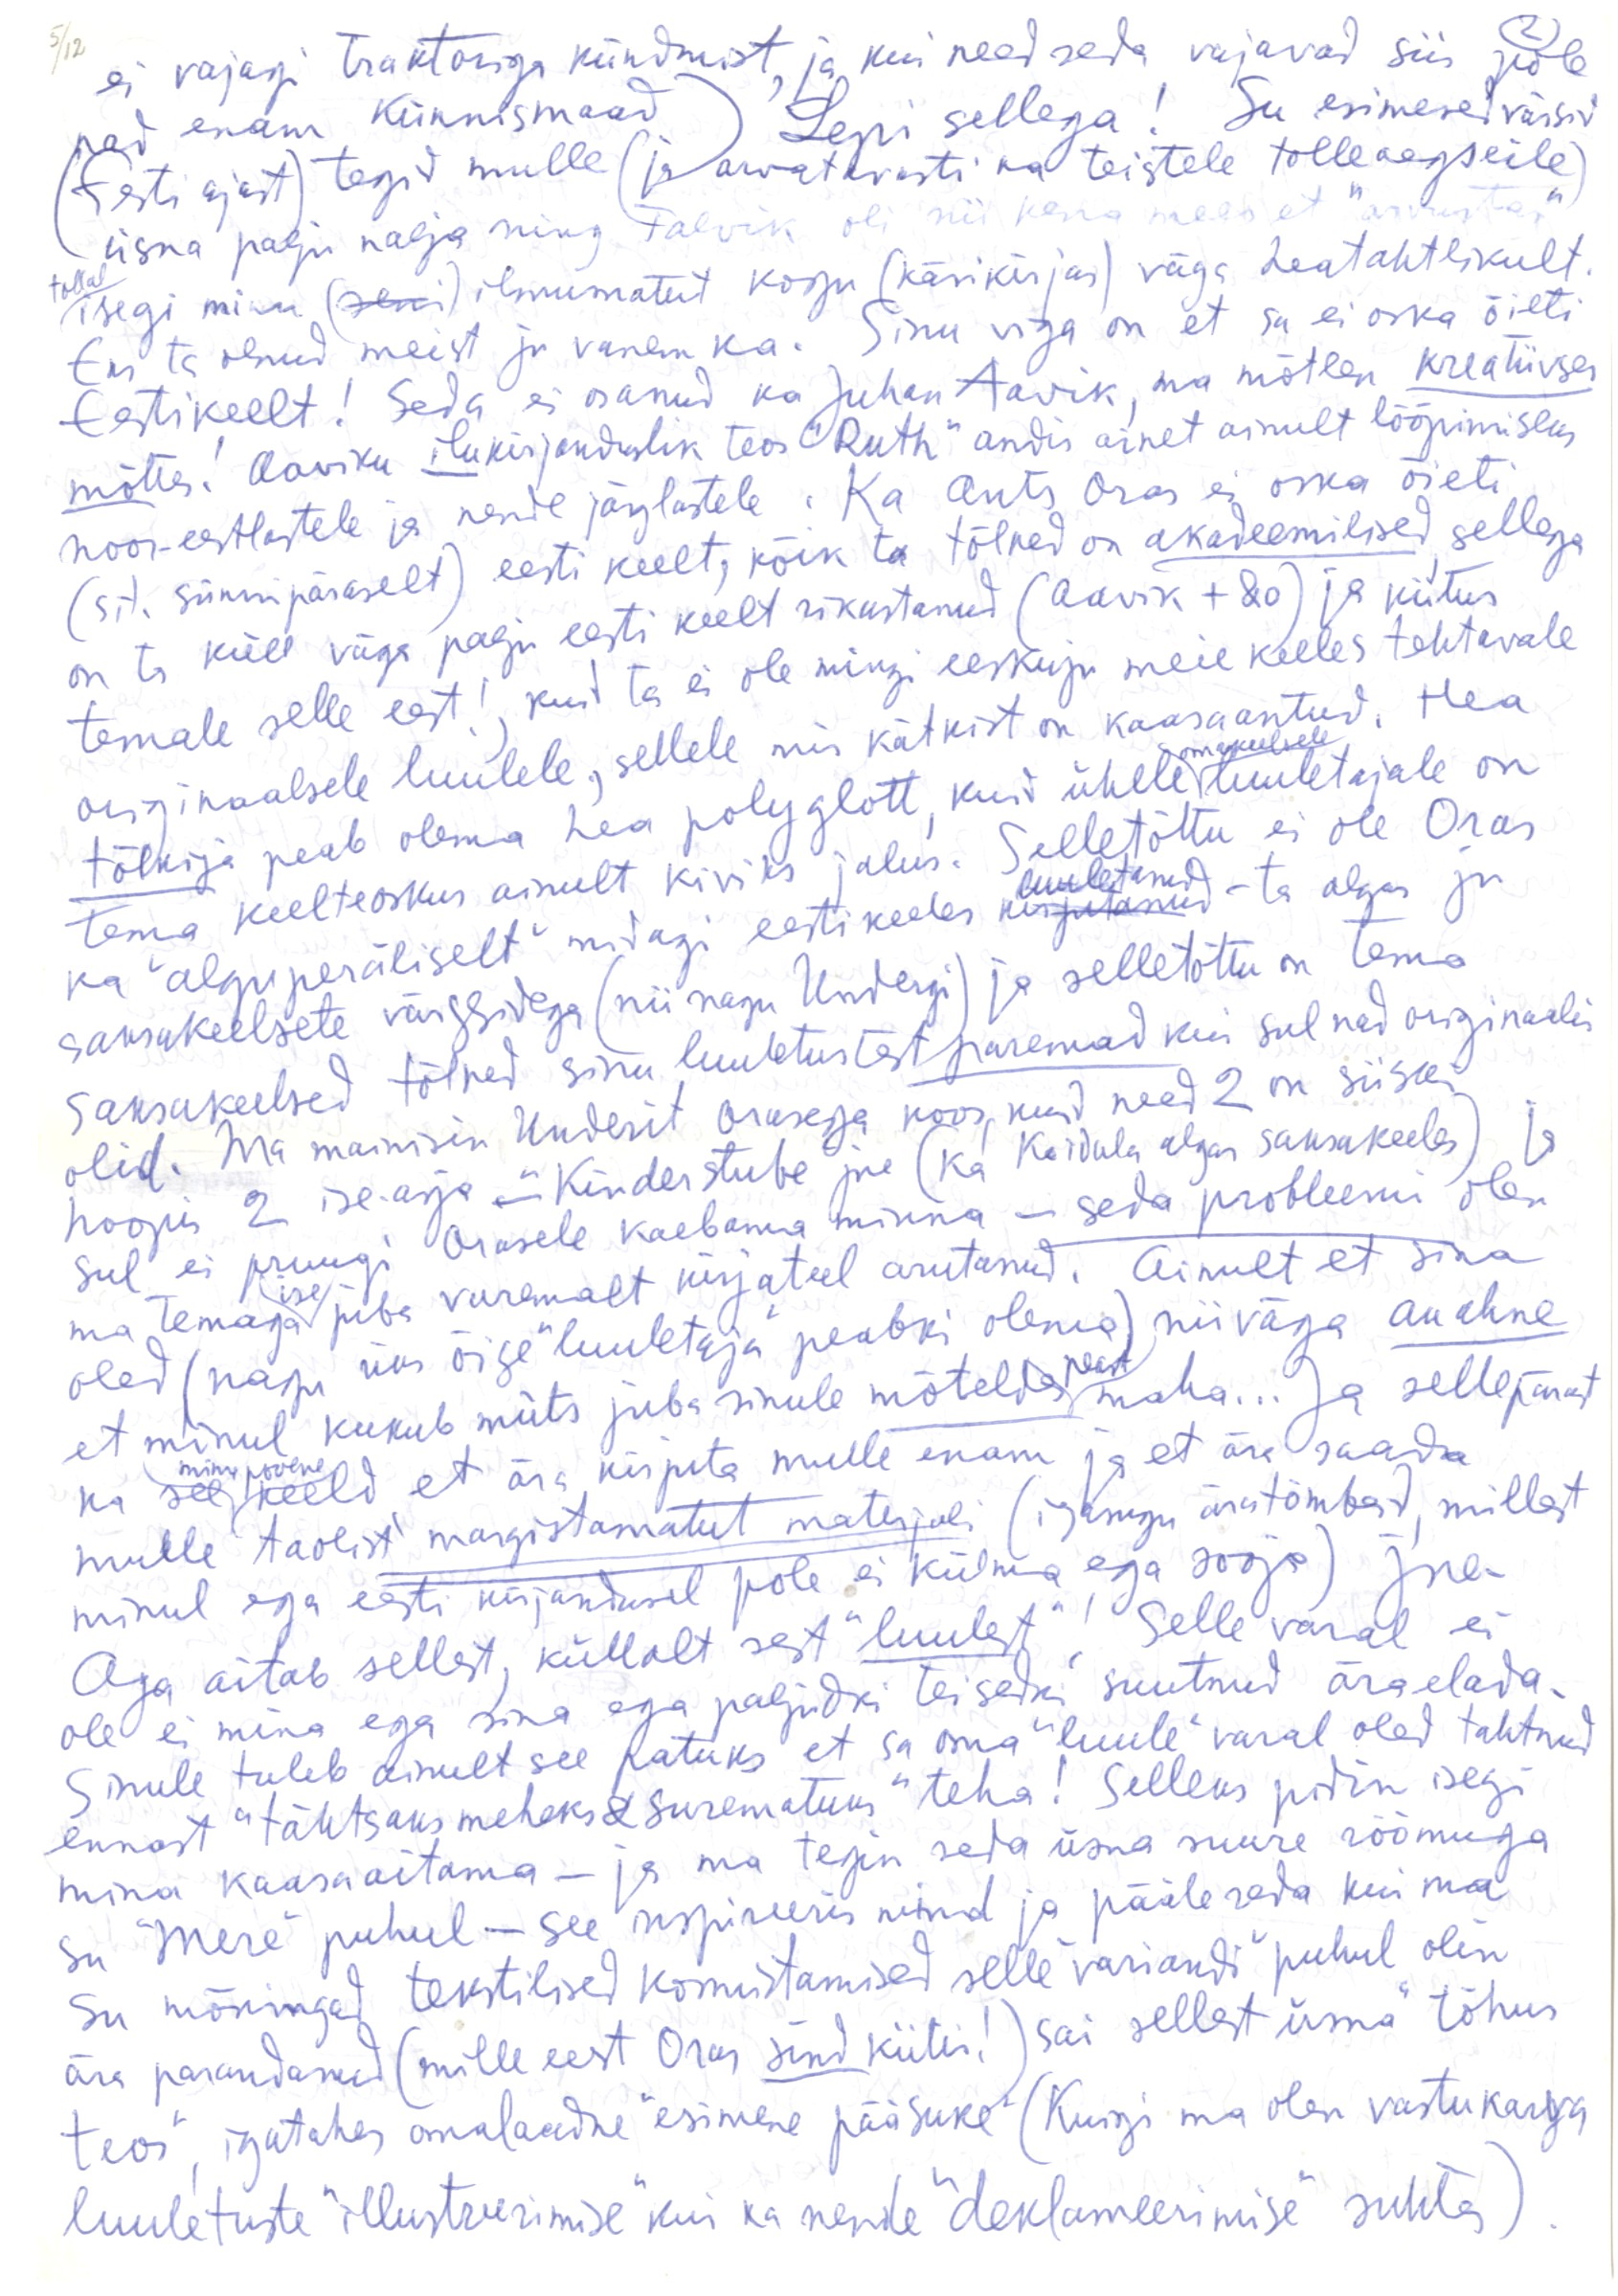 5/12
(2)
ei vajagi traktoriga kündmist, ja kui need seda vajavad siis pole
nad enam künnismaad) Lepi sellega! Su esimesed värsid
(Eesti ajast) tegid mulle (ja arvatavasti ka teistele tolleaegseile)
üsna palju nalja ning Talvik oli nii kena mees et "arvustas"
tollal
isegi minu (seni) ilmumatut kogu (käsikirjas) väga heatahtlikult.
Eks ta olnud meist ju vanem ka. Sinu viga on et sa ei oska õieti
Eestikeelt! Seda ei osanud ka Juhan Aavik, ma mõtlen kreatiivses
mõttes! Aaviku ilukirjanduslik teos "Ruth" andis ainet ainult lööpimiseks
noor-eestlastele ja nende järglastele. Ka Ants Oras ei oska õieti
(s.t. sünnipäraselt) eesti keelt, kõik ta tõlked on akadeemilised, sellega
on ta küll väga palju eesti keelt rikastanud (Aavik + Bo) ja kiitus
temale selle eest!, kuid ta ei ole mingi eeskuju meie keeles tehtavale
originaalsele luulele, sellele mis kätkist on kaasaantud. Hea
tõlkija peab olema hea polyglott, kuid ühele omakeelsele luuletajale on
tema keelteoskus ainult kiviks jalus. Selletõttu ei ole Oras
ka "algupäraliselt" midagi eestikeeles kirjutanud luuletanud - ta algas ju
saksakeelsete värssidega (nii nagu Undergi) ja selletõttu on tema
saksakeelsed tõlked sinu luuletustest paremad kui sul nad originaalis
olid. Ma mainisin Underit Orasega koos, kuid need 2 on siiski
hoopis 2 ise-asja - "Kinderstube" jne (ka Koidula algas saksakeeles) ja
sul ei pruugi Orasele kaebama minna - seda probleemi olen
ma temaga ise juba varemalt kirjateel arutanud. Ainult et sina
oled (nagu üks õige "luuletaja" peabki olema) niiväga auahne
et minul kukub müts juba sinule mõteldes peast maha... Ja sellepärast
ka see minupoolne keeld, et ära kirjuta mulle enam ja et ära saada
mulle taolist margistamatut materjali (igasugu äratõmbeid, millest
minul ega eesti kirjandusel pole ei külma ega sooja) jne.
Aga aitab sellest, küllalt sest "luulest"! Selle varal ei
ole ei mina ega sina ega paljudki teisedki suutnud äraelada.
Sinule tuleb ainult see patuks et sa oma "luule" varal oled tahtnud
ennast "tähtsaks meheks & surematuks" teha! Selleks pidin isegi
mina kaasaaitama - ja ma tegin seda üsna suure rõõmuga
su "Mere" puhul - see inspireeris mind ja pääle seda kui ma
su mõningad tekstilised komistamised selle "variandi" puhul olin
ära parandanud (mille eest Oras sind kiitis!) sai sellest üsna "tõhus
teos", igatahes omalaadne "esimene pääsuke" (Kuigi ma olen vastukarva
luuletuste "illustreerimise" kui ka nende "deklameerimise" suhtes).